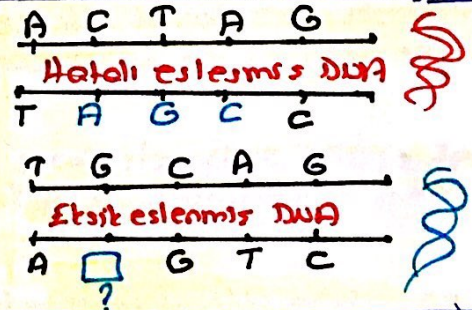 A C T A G
Hatalı eslesmis DNA
T A G C C
T G C A G
Eksik eslenmis DNA
A G T C
?